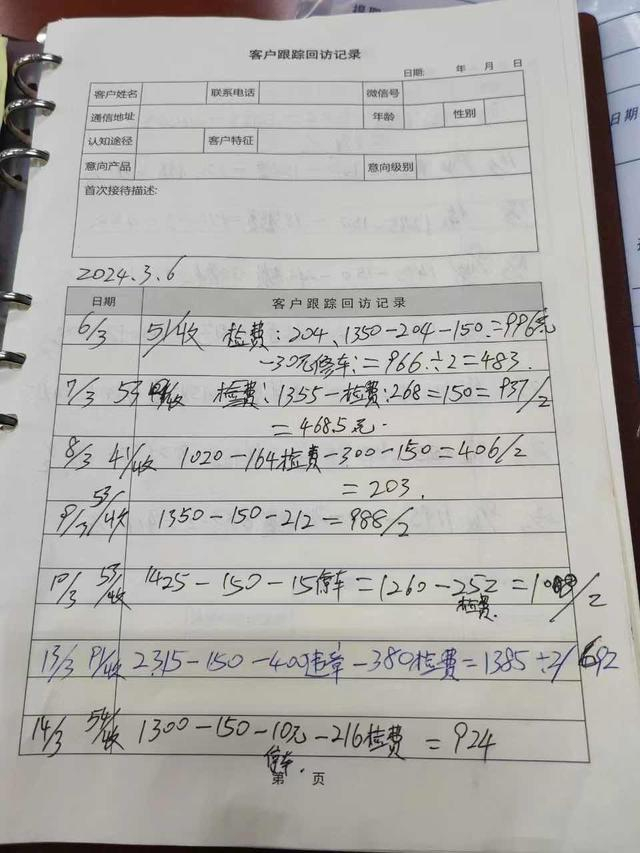 客户跟踪回访记录
日期: 年 月 日
客户姓名 联系电话 微信号
通信地址 年龄 性别
认知途径 客户特征
意向产品 意向级别
首次接待描述:
2024.3.6
日期 客户跟踪回访记录
6/3 51/收 检费:204、1350-204-150=996元
-30元修车:=966÷2=483.
7/3 53 收 检费:1355-检费:268=150=937/2
=468.5元.
8/3 41/收 1020-164检费-300-150=406/2
=203.
9/3 53/收 1350-150-212=988/2
10/3 53/收 1425-150-15停车=1260-252=
检费. /2
13/3 91/收 2315-150-400违章-380检费=1385÷2/692
14/3 54/收 1300-150-10元-216检费=924
停车.
第 页
日期